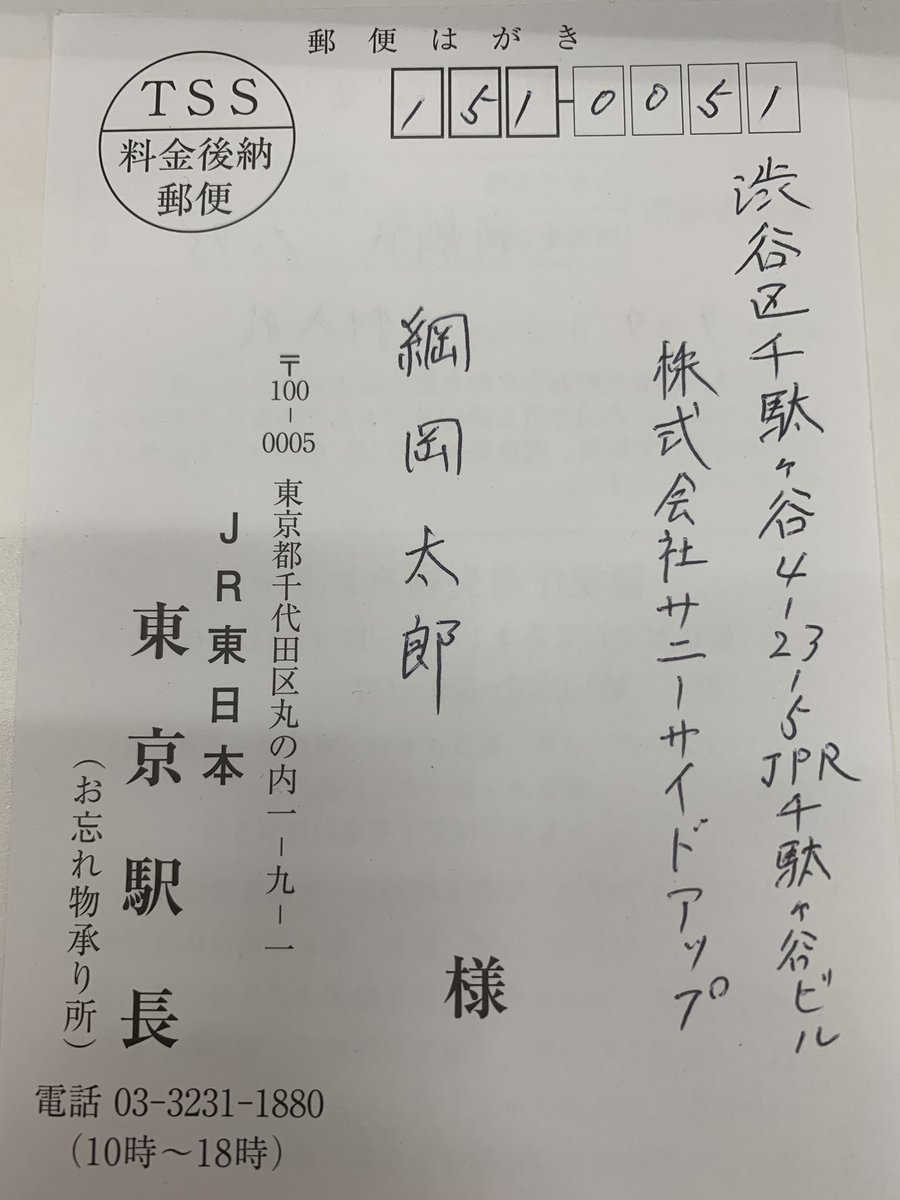 郵便はがき
TSS
料金後納
郵便
151-0051
渋谷区千駄ヶ谷4-23-5 JPR千駄ヶ谷ビル
株式会社サニーサイドアップ
綱岡太郎
様
〒100-0005 東京都千代田区丸の内一-九-一
JR東日本
東京駅長
(お忘れ物承り所)
電話 03-3231-1880
(10時～18時)